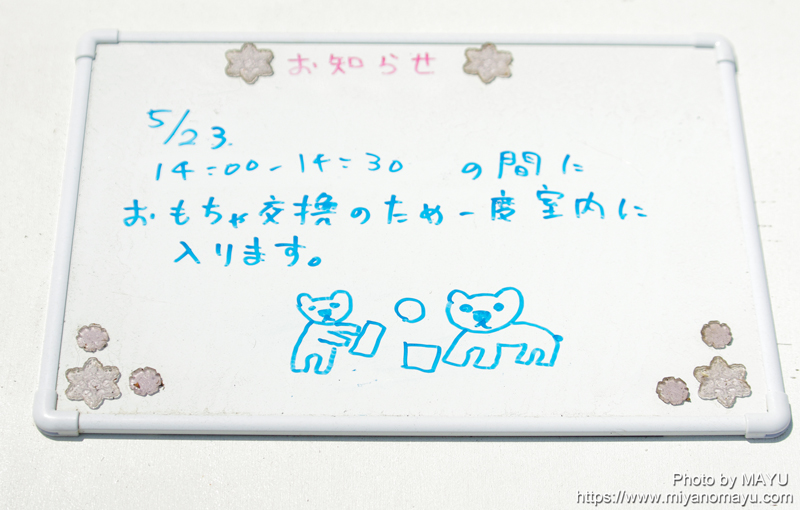 お知らせ
5/23.
14:00-14:30 の間に
おもちゃ交換のため一度室内に
入ります。
Photo by MAYU
https://www.miyanomayu.com